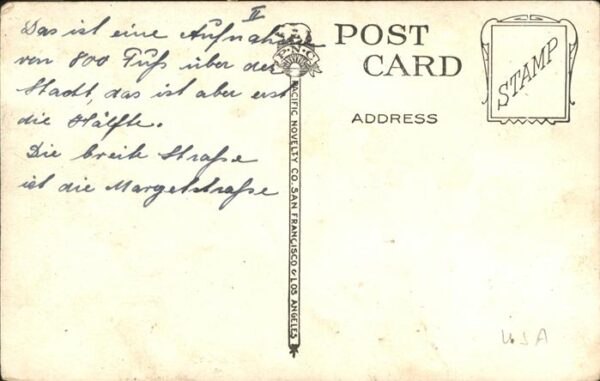 II
Das ist eine Aufnahme
von 800 Fuſs über der
Stadt, das ist aber erst
die Hälfte.
Die breite Straſse
ist die Margetstraſse
P.N.C.
PACIFIC NOVELTY CO. SAN FRANCISCO & LOS ANGELES
POST
CARD
ADDRESS
STAMP
USA